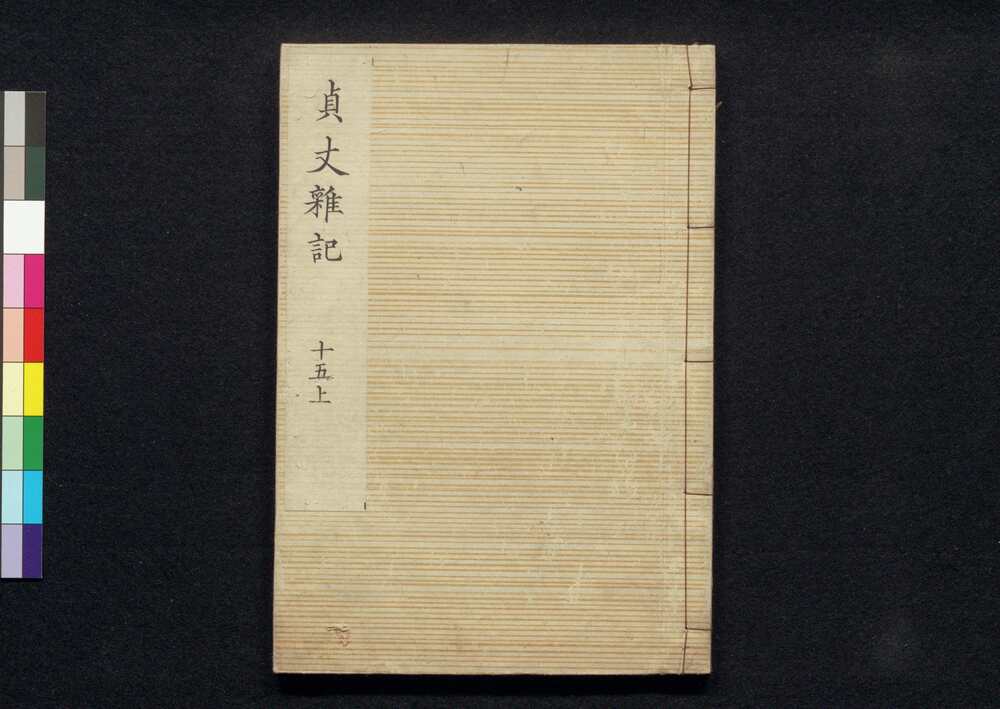 貞丈雜記
十五上